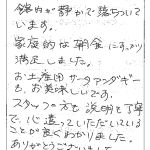 館内が静かで落ちついて
います。
家庭的な朝食にすっかり
満足しました。
お土産用サーターアンダギー
も、お美味しいです。
スタッフの方も説明も丁寧
で、心遣っていただいている
ことが良くわかりました。
ありがとうございました